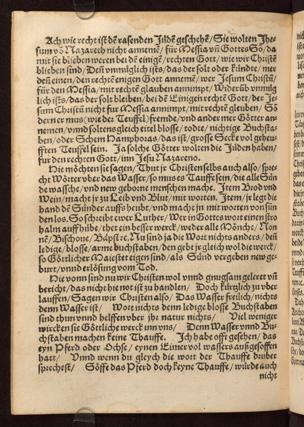 Ach wie recht ist dē rasenden Jüdē geschehē/ Sie wolten Jhe-
sum vō Nazareth nicht annemē/ für Messia vn̄ Gottes Sō/ da
mit sie blieben weren bei dē einigē/ rechten Gott/ wie wir Christē
blieben sind/ Deñ vnmüglich ists/ das der solt oder kündte/ mer
deñ einen/ den rechtē einigē Gott/ annemē/ wer Jesum Christū/
für den Messia/ mit rechtē glauben annimpt/ Widerūb vnmüg
lich ists/ das der solt bleiben/ bei dē Einigen rechtē Gott/ der Je-
sum Christū nicht fur Messia annimpt/ mit rechtē glaubē/ Sō
dern er mus/ wie der Teuffel) frembde/ vnd ander mer Götter an-
nemen/ vnnd soltens gleich eitel blosse/ todte/ nichtige Buchsta-
ben/ oder Schem Hamphoras/ das ist/ grosse Secke vol gebeu-
fften Teuffel sein. Ja solche Götter wolten die Jüden haben/
fur den rechten Gott/ inn Jesu Nazareno.
Hie möchten sie sagen/ Thut jr Christen selbs auch also/ spre-
cht Wörter vber das Wasser/ so mus es Tauff sein/ die alle Sün
de wassche/ vnd new geborne menschen mache. Jtem Brod vnd
Wein/ macht jr zu Leib vnd Blut/ mit worten. Jtem/ jr legt die
hand dē Sünder auffs heubt/ vnd macht jn mit worten von sün
den los. So schreibet ewer Luther/ Wer in Gottes wort einen stro
halm auffhübe/ thet ein besser werck/ weder alle Mönche/ Non-
nē/ Bischoue/ Bäpste. Nu sind ja die Wort nichts anders/ deñ
ledige/ blosse/ arme buchstaben/ den gebt jr gleich wol die werck/
so Göttlicher Maiestet eigen sind/ als Sünd vergeben/ new ge-
burt/ vnnd erlösung vom Tod.
Hie vonn sind nu wir Christen wol vnnd gnugsam geleret vn̄
bericht/ das nicht hie not ist zu handlen/ Doch kürtzlich zu vber
lauffen/ Sagen wir Christen also/ Das Wasser freilich/ nichts
denn Wasser ist/ Wort nichts denn ledige blosse Buchstaben
sind thun vnnd helffen vber jhr natur nichts/ Viel weniger
wircken sie Göttliche werck inn vns/ Denn Wasser vnnd Bu-
chstaben machen keine Thauffe. Jch habe offt gesehen/ das
eyn Pferd oder Ochse/ eynen Eimer vol wassers außgesoffen
hatt/ Vnnd wenn du gleych die wort der Thauffe druber
sprechest/ Söffe das Pferd doch keyne Thauffe/ würde auch
nicht